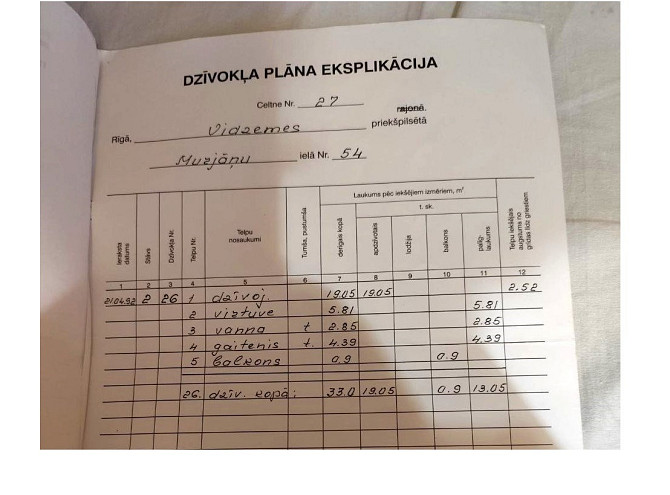 DZĪVOKĻA PLĀNA EKSPLIKĀCIJA
Celtne Nr. 27
rajonā.
Rīgā, Vidzemes priekšpilsētā
Murjāņu ielā Nr. 54
Laukums pēc iekšējiem izmēriem, m²
t. sk.
Ieraksta datums Stāvs Dzīvokļa Nr. Telpu Nr. Telpu nosaukumi Tumša, pustumša derīgais kopā apdzīvotais lodžija balkons palīglaukums Telpu iekšējais augstums no grīdas līdz griestiem
1 2 3 4 5 6 7 8 9 10 11 12
21.04.92 2 26 1 dzīvoj. 19.05 19.05 2.52
2 virtuve 5.81 5.81
3 vanna t 2.85 2.85
4 gaitenis t. 4.39 4.39
5 balkons 0.9 0.9
26. dzīv. kopā: 33.0 19.05 0.9 13.05